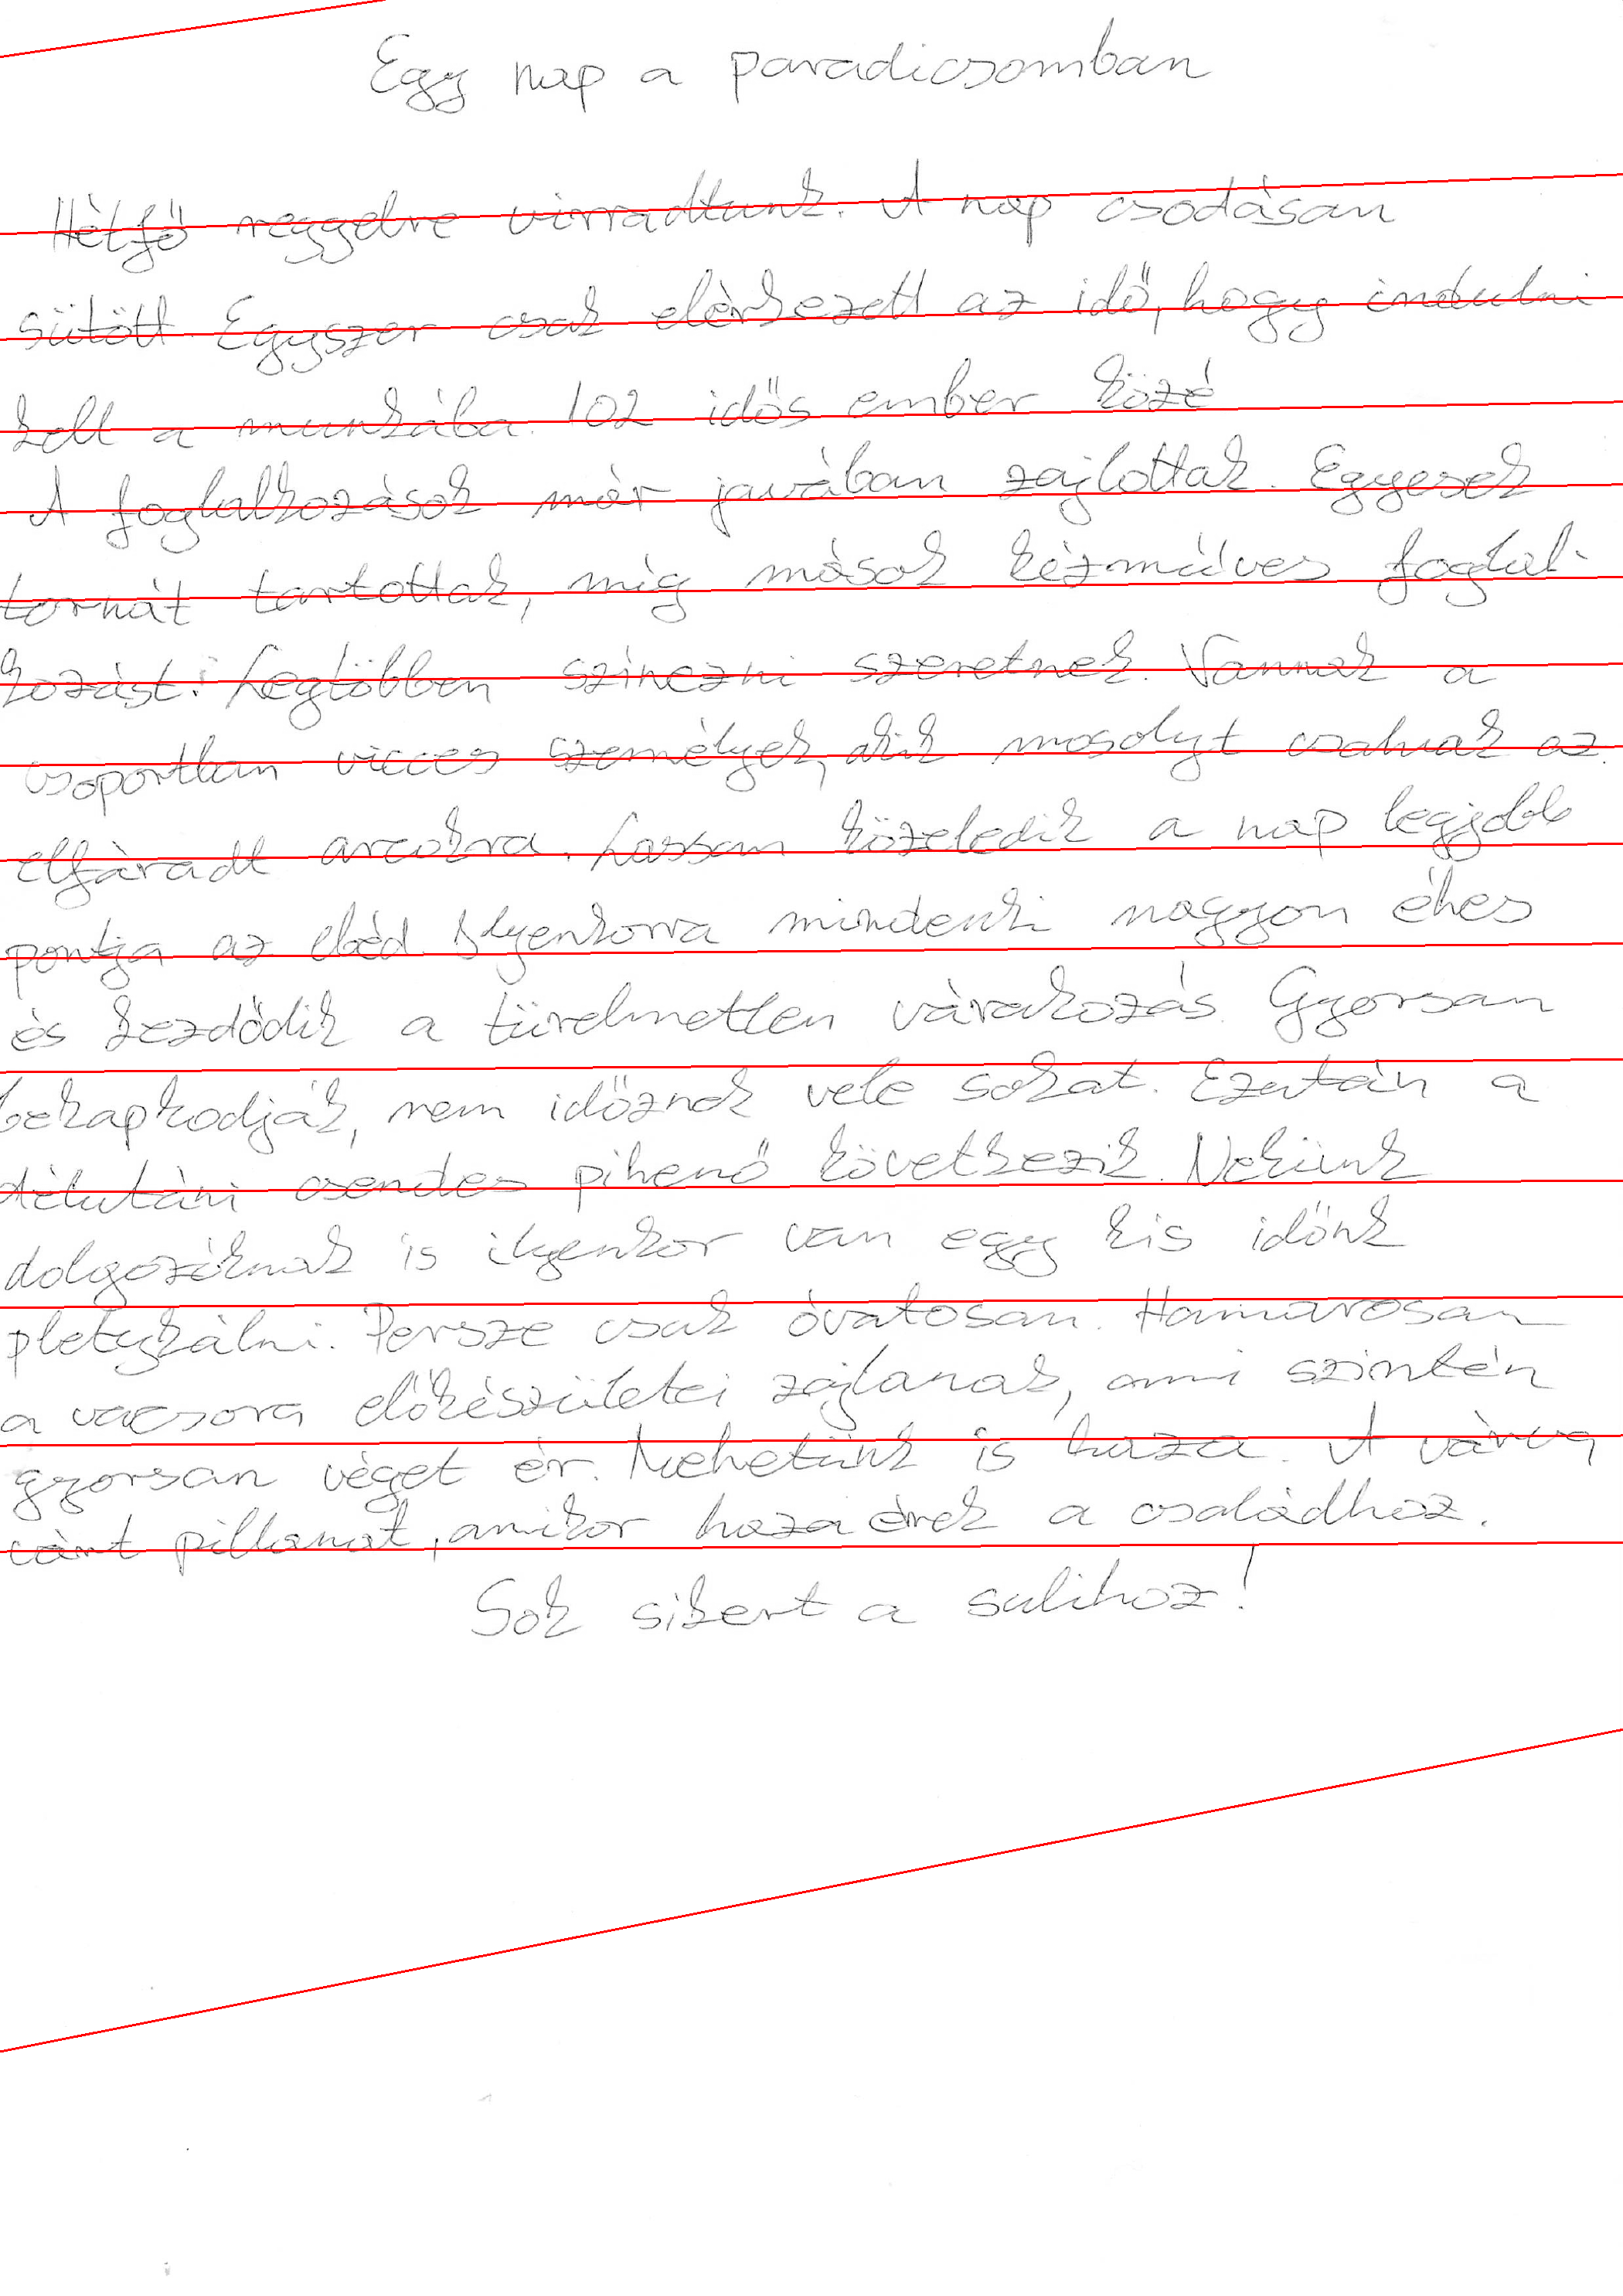 Egy nap a paradicsomban
Hétfő reggelre virradtunk. A nap csodásan
sütött. Egyszer csak elérkezett az idő, hogy indulni
kell a munkába. 102 idős ember közé
A foglalkozások már javában zajlottak. Egyesek
tornát tartottak, míg mások kézműves foglal-
kozást. Legtöbben színezni szeretnek. Vannak a
csoportban vicces személyek, akik mosolyt csalnak az
elfáradt arcokra. Lassan közeledik a nap legjobb
pontja az ebéd. Ilyenkorra mindenki nagyon éhes
és kezdődik a türelmetlen várakozás. Gyorsan
bekapkodják, nem időznek vele sokat. Ezután a
délutáni csendes pihenő következik. Nekünk
dolgozóknak is ilyenkor van egy kis időnk
pletykálni. Persze csak óvatosan. Hamarosan
a vacsora előkészületei zajlanak, ami szintén
gyorsan véget ér. Mehetünk is haza. A várva
várt pillanat, amikor haza érek a családhoz.
Sok sikert a sulihoz!